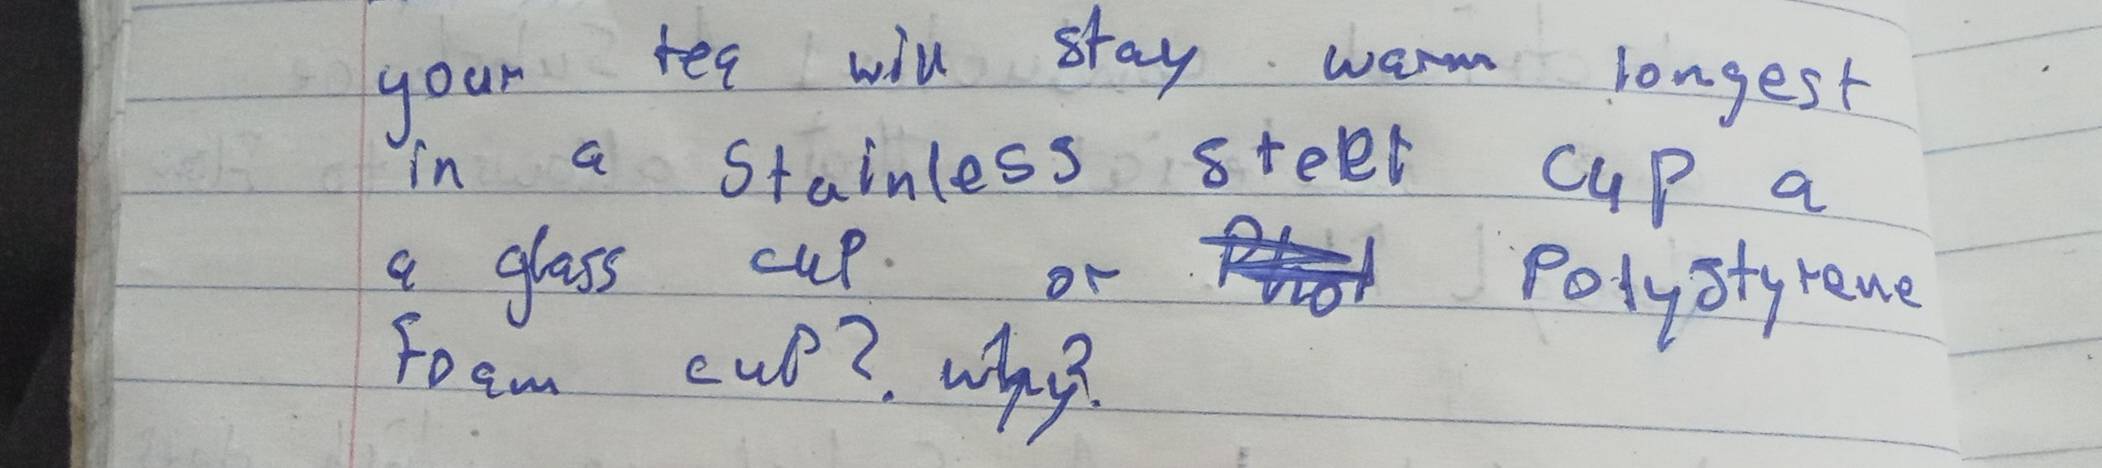 your tea will stay warm longest
in a Stainless steel cup a
a glass cup. or Polystyrene
foam cup? why?